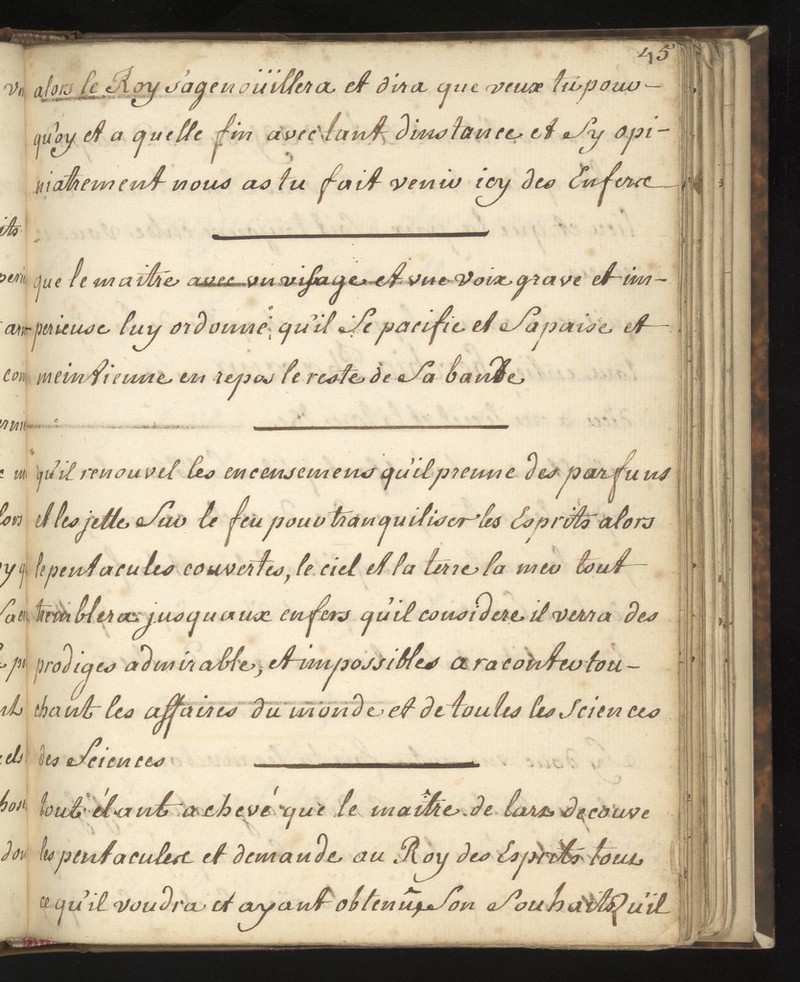 45
alors le Roy s'agenoüillera et dira que veux tu pour-
quoy et a quelle fin avec tant dinstance et sy opi-
niatrement nous as tu fait venir icy des Enfers
que le maitre avec un visage et vne voix grave et im-
perieuse luy ordonne qu'il se pacifie et sapaise et
meintienne en repos le reste de sa bande
qu'il renouvel les encensemens qu'il prenne des parfuns
et les jette sur le feu pour tranquiliser les Esprits alors
le pentacules couvertes, le ciel et la terre la mer tout
tremblera jusquaux enfers qu'il considere il verra des
prodiges admirable, et impossibles a raconter tou-
chant les affaires du monde et de toutes les sciences
des sciences
tout étant achevé que le maître de lart decouvre
les pentacules et demande au Roy des Esprits tous
ce qu'il voudra et ayant obtenu son souhaits qu'il